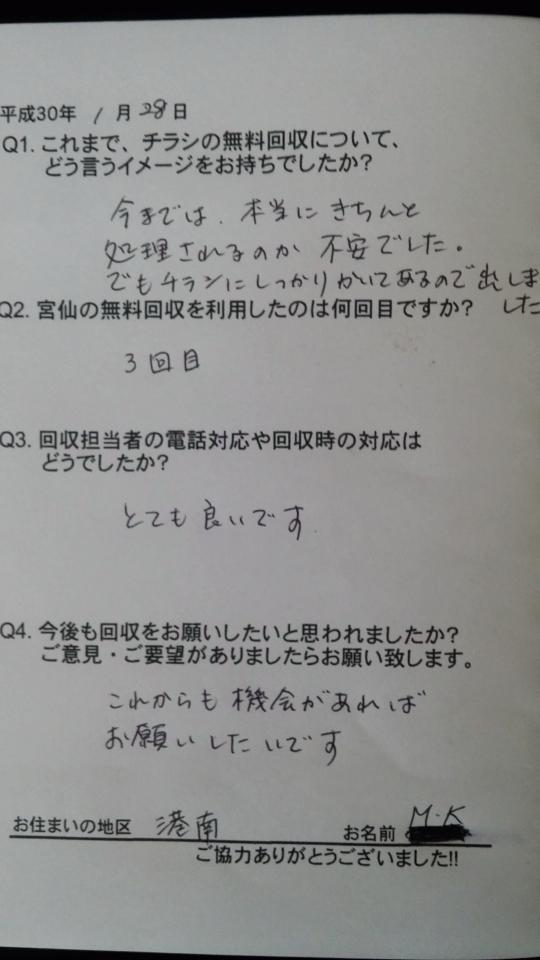 平成30年 1月28日
Q1. これまで、チラシの無料回収について、
どう言うイメージをお持ちでしたか?
今までは、本当にきちんと
処理されるのか不安でした。
でもチラシにしっかりかいてあるので出しま
した
Q2. 宮仙の無料回収を利用したのは何回目ですか?
3回目
Q3. 回収担当者の電話対応や回収時の対応は
どうでしたか?
とても良いです
Q4. 今後も回収をお願いしたいと思われましたか?
ご意見・ご要望がありましたらお願い致します。
これからも機会があれば
お願いしたいです
お住まいの地区 港南 お名前 M・K
ご協力ありがとうございました!!